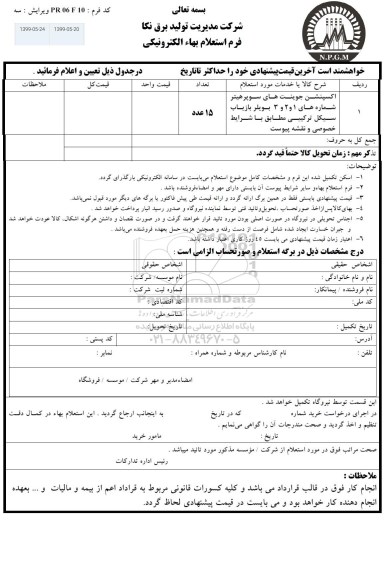 بسمه تعالی
کد فرم : PR 06 F 10 ویرایش : سه
شرکت مدیریت تولید برق نکا
فرم استعلام بهاء الکترونیکی
1399-05-20
1399-05-24
N.P.G.M
خواهشمند است آخرین قیمت پیشنهادی خود را حداکثر تا تاریخ درجدول ذیل تعیین و اعلام فرمائید .
ردیف شرح کالا یا خدمات مورد استعلام تعداد قیمت واحد قیمت کل ملاحظات
۱ اکسپنشن جوینت های سوپرهیتر
شماره های ۱و۲و ۳ بویلر بازیاب
سیکل ترکیبی مطابق با شرایط
خصوصی و نقشه پیوست
۱۵ عدد
جمع کل به حروف:
تذکر مهم : زمان تحویل کالا حتماً قید گردد.
توضیحات:
۱- اسکن تکمیل شده این فرم و مشخصات کامل موضوع استعلام می‌بایست در سامانه الکترونیکی بارگذاری گردد.
۲- فرم استعلام بهاءو سایر شرایط پیوست آن بایستی دارای مهر و امضاءفروشنده باشد .
۳- قیمت پیشنهادی بایستی فقط در همین برگ ارائه گردد و ارائه قیمت طی پیش فاکتور یا برگه های دیگر مورد قبول نمی‌باشد.
۴- بهای‌کالاپس‌ازاخذ صورتحساب ،تحویل‌وتائید فنی توسط نماینده نیروگاه و صدور رسید انبار پرداخت خواهد شد .
۵- اجناس تحویلی در نیروگاه در صورت اصلی بودن مورد تائید قرار خواهند گرفت و در صورت نقصان و داشتن هرگونه اشکال، کالا عودت خواهد شد
و جبران خسارت ایجاد شده شامل فرصت از دست رفته و همچنین هزینه حمل بعهده فروشنده می‌باشد .
۶- اعتبار زمان قیمت پیشنهادی می بایست ۴۵ روز کاری اعتبار داشته باشد.
درج مشخصات ذیل در برگه استعلام و صورتحساب الزامی است :
اشخاص حقیقی اشخاص حقوقی
نام و نام خانوادگی : نام موسسه/ شرکت :
نام فروشنده / پیمانکار: شماره ثبت شرکت :
کد ملی: کد اقتصادی:
شناسه ملی:
تاریخ تکمیل : تاریخ تحویل:
آدرس: کد پستی :
تلفن : نام کارشناس مربوطه و شماره همراه : نمابر :
ParsNamadData
۰۲۱-۸۸۳۴۹۶۷۰-۵
امضاءمدیر و مهر شرکت / موسسه / فروشگاه
این قسمت توسط نیروگاه تکمیل خواهد شد .
در اجرای درخواست خرید شماره که در تاریخ به اینجانب ارجاع گردید . این استعلام بهاء در کمال دقت
تنظیم و اخذ گردید و صحت مندرجات آن را گواهی می‌نمایم .
تاریخ : مامور خرید
صحت مراتب فوق در مورد استعلام از شرکت / مؤسسه مذکور مورد تائید میباشد .
رئیس اداره تدارکات
ملاحظات :
انجام کار فوق در قالب قرارداد می باشد و کلیه کسورات قانونی مربوط به قراداد اعم از بیمه و مالیات و ... بعهده
انجام دهنده کار خواهد بود و می بایست در قیمت پیشنهادی لحاظ گردد.